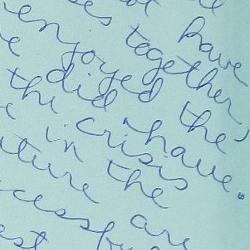 have
together,
enjoyed the
did have.
the crisis
in the
uture are
cessfu
est